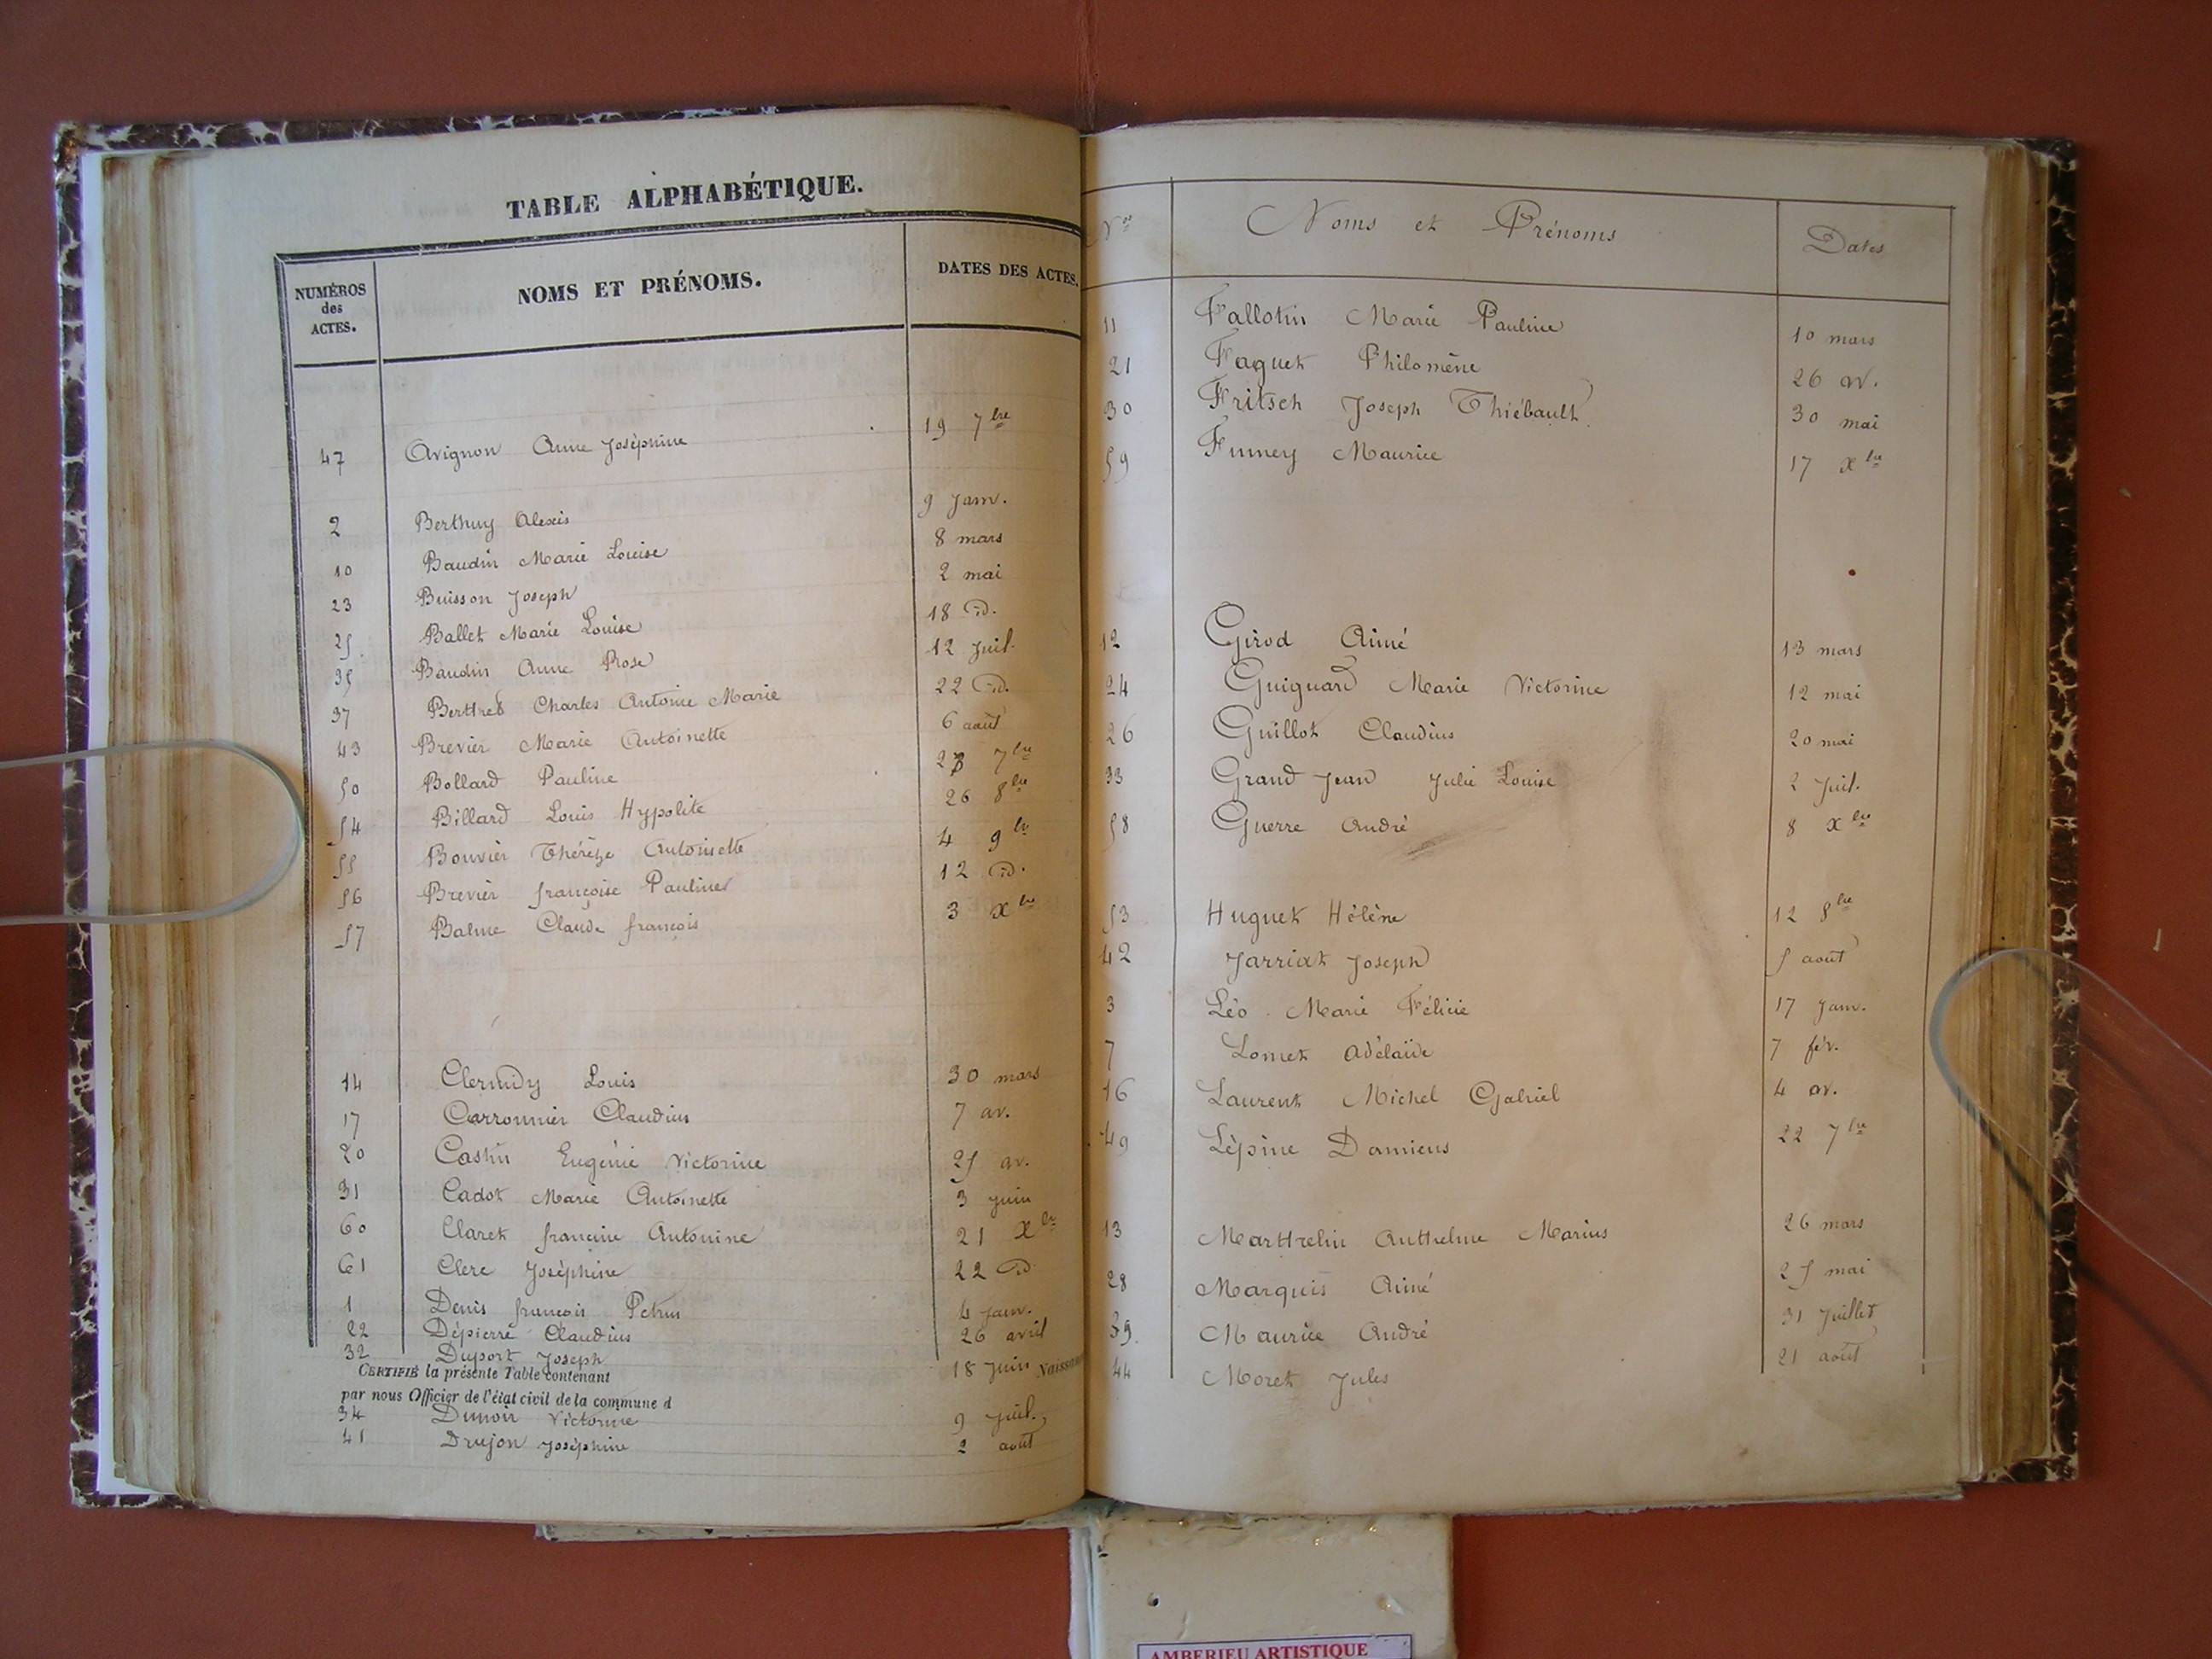 TABLE ALPHABÉTIQUE.
NUMÉROS des ACTES. NOMS ET PRÉNOMS. DATES DES ACTES.
47 Avignon Anne Joséphine 19 7bre
2 Berthuy Alexis 9 Janv.
10 Baudin Marie Louise 8 mars
23 Buisson Joseph 2 mai
25. Ballet Marie Louise 18 id.
35 Baudin Anne Rose 12 Juil.
37 Berthet Charles Antoine Marie 22 id.
43 Brevier Marie Antoinette 6 août
50 Bollard Pauline 7bre
54 Billard Louis Hypolite 26 8bre
55 Bouvier Thérèze Antoinette 4 9bre
56 Brevier françoise Pauline 12 id.
57 Balme Claude françois 3 Xbre
14 Clermidy Louis 30 mars
17 Carronnier Claudius 7 av.
20 Castin Eugénie Victorine 25 av.
31 Cadot Marie Antoinette 3 juin
60 Claret francine Antonine 21 Xbre
61 Clerc Joséphine 22 id
1 Denis françois Petrus 4 Janv.
22 Dépierre Claudius 26 avril
32 Duport Joseph 18 Juin
CERTIFIÉ la présente Table contenant
par nous Officier de l'état civil de la commune d
34 Dunoir Victorine 9 juil.
41 Drujon Joséphine 2 août
Nos Noms et Prénoms Dates
11 Fallotin Marie Pauline 10 mars
21 Faguet Philomène 26 av.
30 Fritsch Joseph Thiébault 30 mai
59 Fumey Maurice 17 Xbre
12 Girod Aimé 13 mars
24 Guignard Marie Victorine 12 mai
26 Guillot Claudius 20 mai
33 Grand Jean Julie Louise 2 Juil.
58 Guerre André 8 Xbre
53 Huguet Hélène 12 8bre
42 Jarriat Joseph 5 août
3 Léo Marie Félicie 17 Janv.
7 Lomet Adélaïde 7 fév.
16 Laurent Michel Gabriel 4 av.
49 Lépine Damiens 22 7bre
13 Marthelin Anthelme Marius 26 mars
28 Marquis Aimé 25 mai
39. Maurice André 31 Juillet
44 Moret Jules 21 août
AMBERIEU ARTISTIQUE